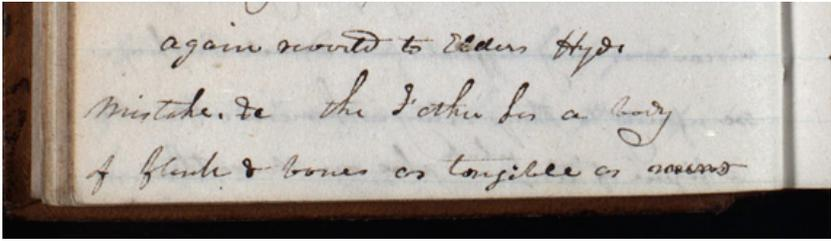 again revertd to Elders Hyde
mistake. &c the Father has a body
of flesh & bones as tangible as mans